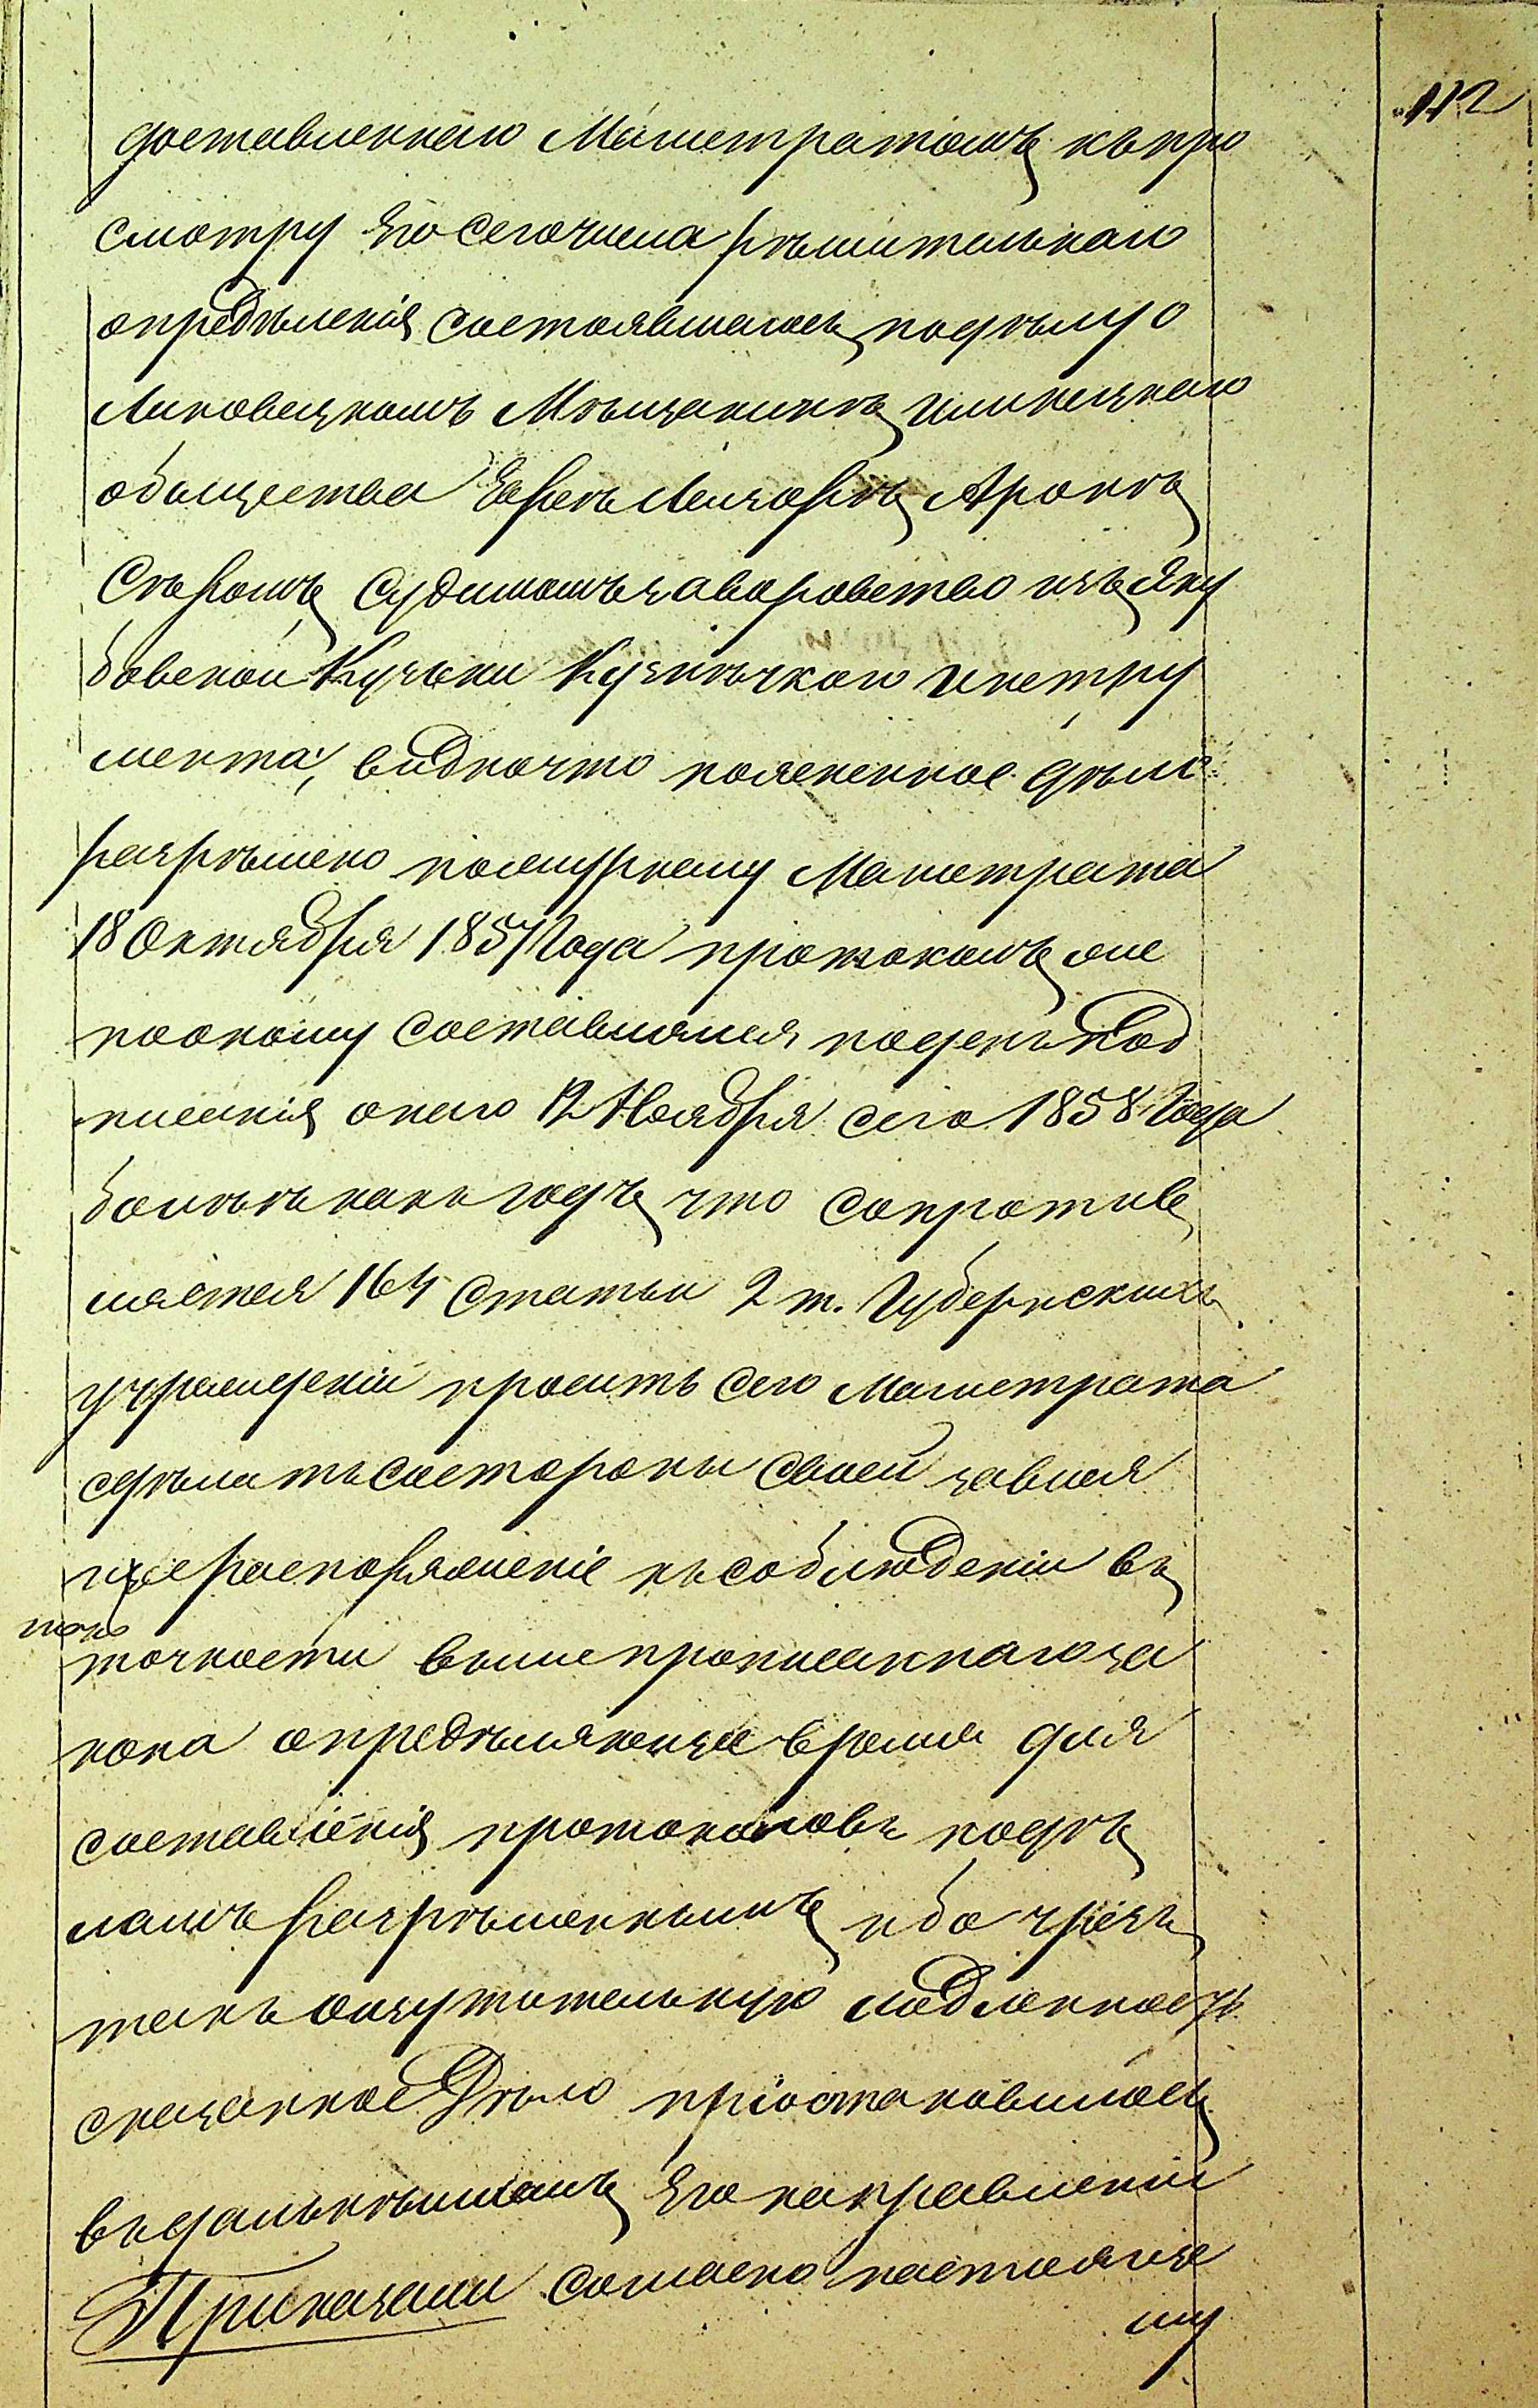 112
доставленнаго Магистратомъ къ про
смотру его сего числа решительнаго
определенія состоявшагось по делу о
Липовецкомъ Мещанинѣ Илинецкаго
общества Евреѣ Лейзорѣ Аронѣ
Сѣромъ судимомъ за воровство изъ Яку
бовской Кузьни Кузнѣчкого инстру
мента, видно что поясненное дѣло
разрѣшено по журналу Магистрата
18 Октября 1857 Года протоколъ же
по оному составлялся по день Под
писанія онаго 12 Ноября сего 1858 Года
болѣѣ какъ годъ что сопротив
ляется 164 статьи 2 т. Губернскихъ
учрежденій просить сего Магистрата
сделать со стороны своей завися
щее распоряженіе къ соблюденіи въ
точности вышепрописаннаго за
кона определяюще время для
составленія протоколовъ по дѣ
ламъ разрѣшеннымъ ибо чрезъ
такъ ощутительную медленность
сказанное Дѣло пріостановилось
въ дальнѣйшемъ его направленіи
Приказали согласно настояще
му